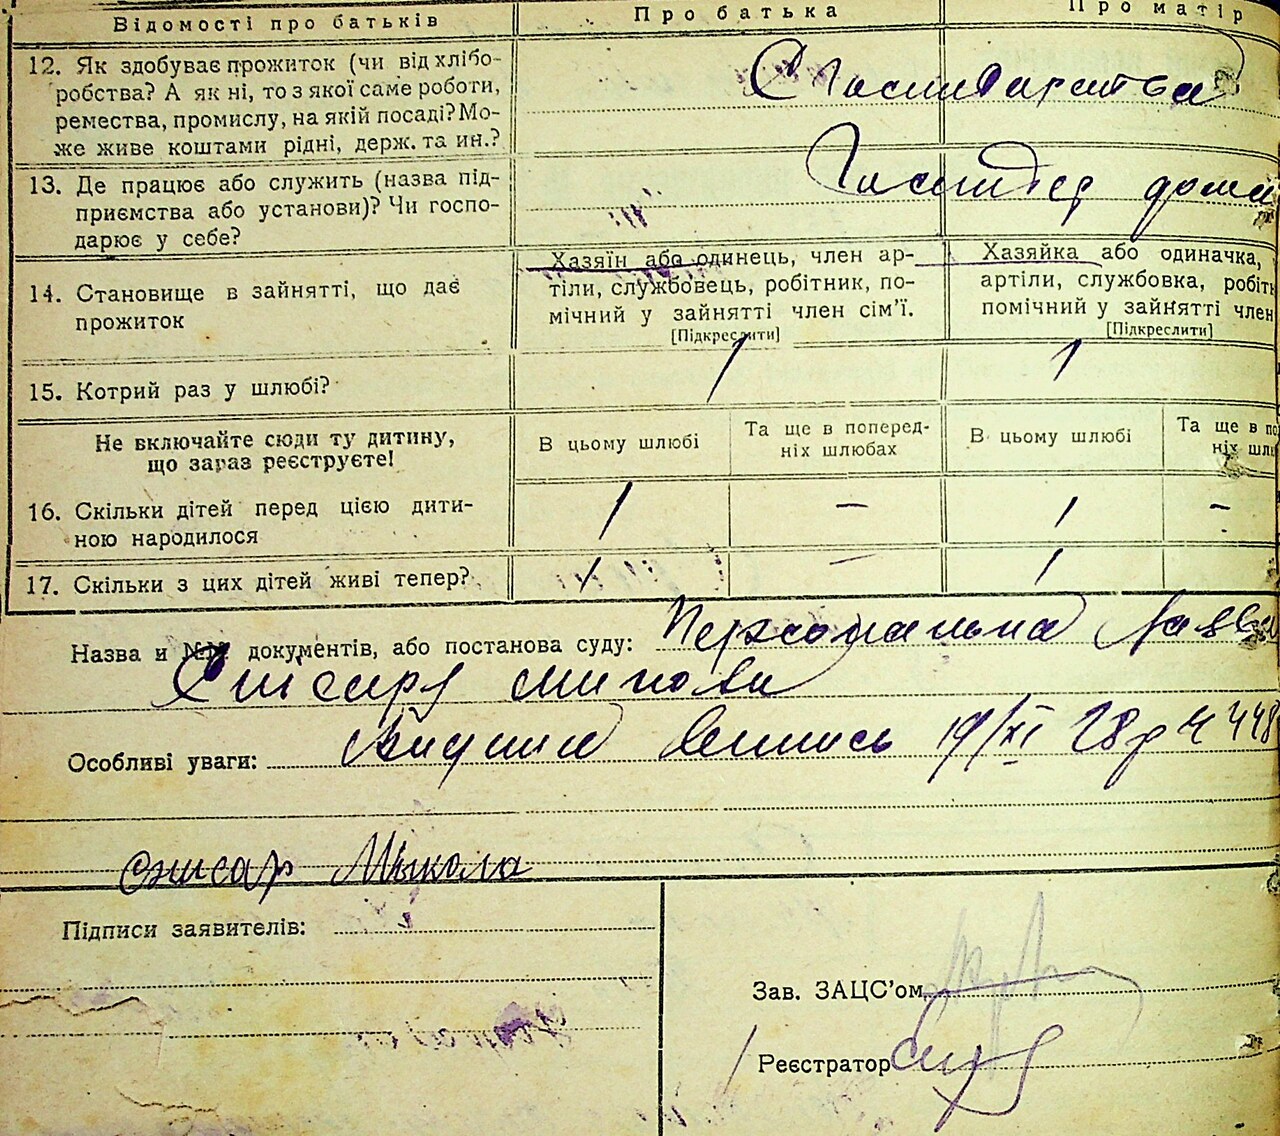 Відомості про батьків
Про батька
Про матір
12. Як здобуває прожиток (чи від хлібо-
робства? А як ні, то з якої саме роботи,
ремества, промислу, на якій посаді? Мо-
же живе коштами рідні, держ. та ин.?
13. Де працює або служить (назва під-
приємства або установи)? Чи госпо-
дарює у себе?
дома
14. Становище в зайнятті, що дає
прожиток
Хазяїн або одинець, член ар-
тіли, службовець, робітник, по-
мічний у зайнятті член сім'ї.
[Підкреслити]
Хазяйка або одиначка,
артіли, службовка, робіт
помічний у зайнятті член
[Підкреслити]
15. Котрий раз у шлюбі?
1
1
Не включайте сюди ту дитину,
що зараз реєструєте!
В цьому шлюбі
Та ще в поперед-
ніх шлюбах
В цьому шлюбі
Та ще в по
ніх шлю
16. Скільки дітей перед цією дити-
ною народилося
1
—
1
-
17. Скільки з цих дітей живі тепер?
1
—
1
Назва и №№ документів, або постанова суду: Персональна заява
Слюсаря Миколи
Особливі уваги: Видана Випись 19/XI 28 р 4448
слюсар Микола
Підписи заявителів:
Зав. ЗАЦС'ом
Реєстратор